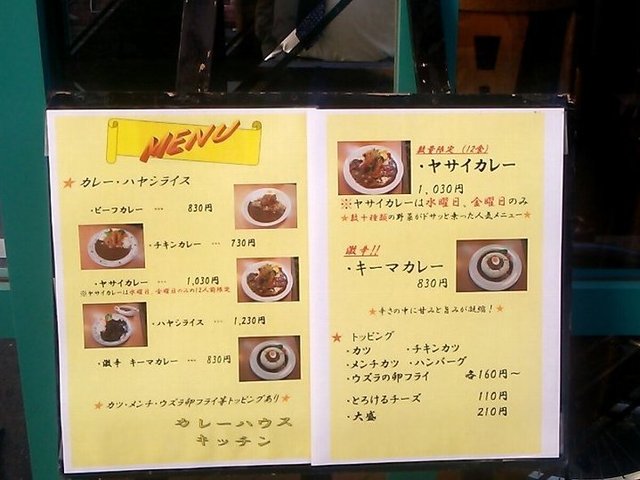 MENU
★ カレー・ハヤシライス
・ビーフカレー … 830円
・チキンカレー … 730円
・ヤサイカレー … 1,030円
※ヤサイカレーは水曜日、金曜日のみの12人前限定
・ハヤシライス … 1,230円
・激辛 キーマカレー … 830円
★ カツ・メンチ・ウズラ卵フライ等トッピングあり ★
カレーハウス
キッチン
数量限定 (12食)
・ヤサイカレー
1,030円
※ヤサイカレーは水曜日、金曜日のみ
★数十種類の野菜がドサッと乗った人気メニュー★
激辛!!
・キーマカレー
830円
★辛さの中に甘みと旨みが凝縮！★
★ トッピング
・カツ ・チキンカツ
・メンチカツ ・ハンバーグ
・ウズラの卵フライ 各160円～
・とろけるチーズ 110円
・大盛 210円